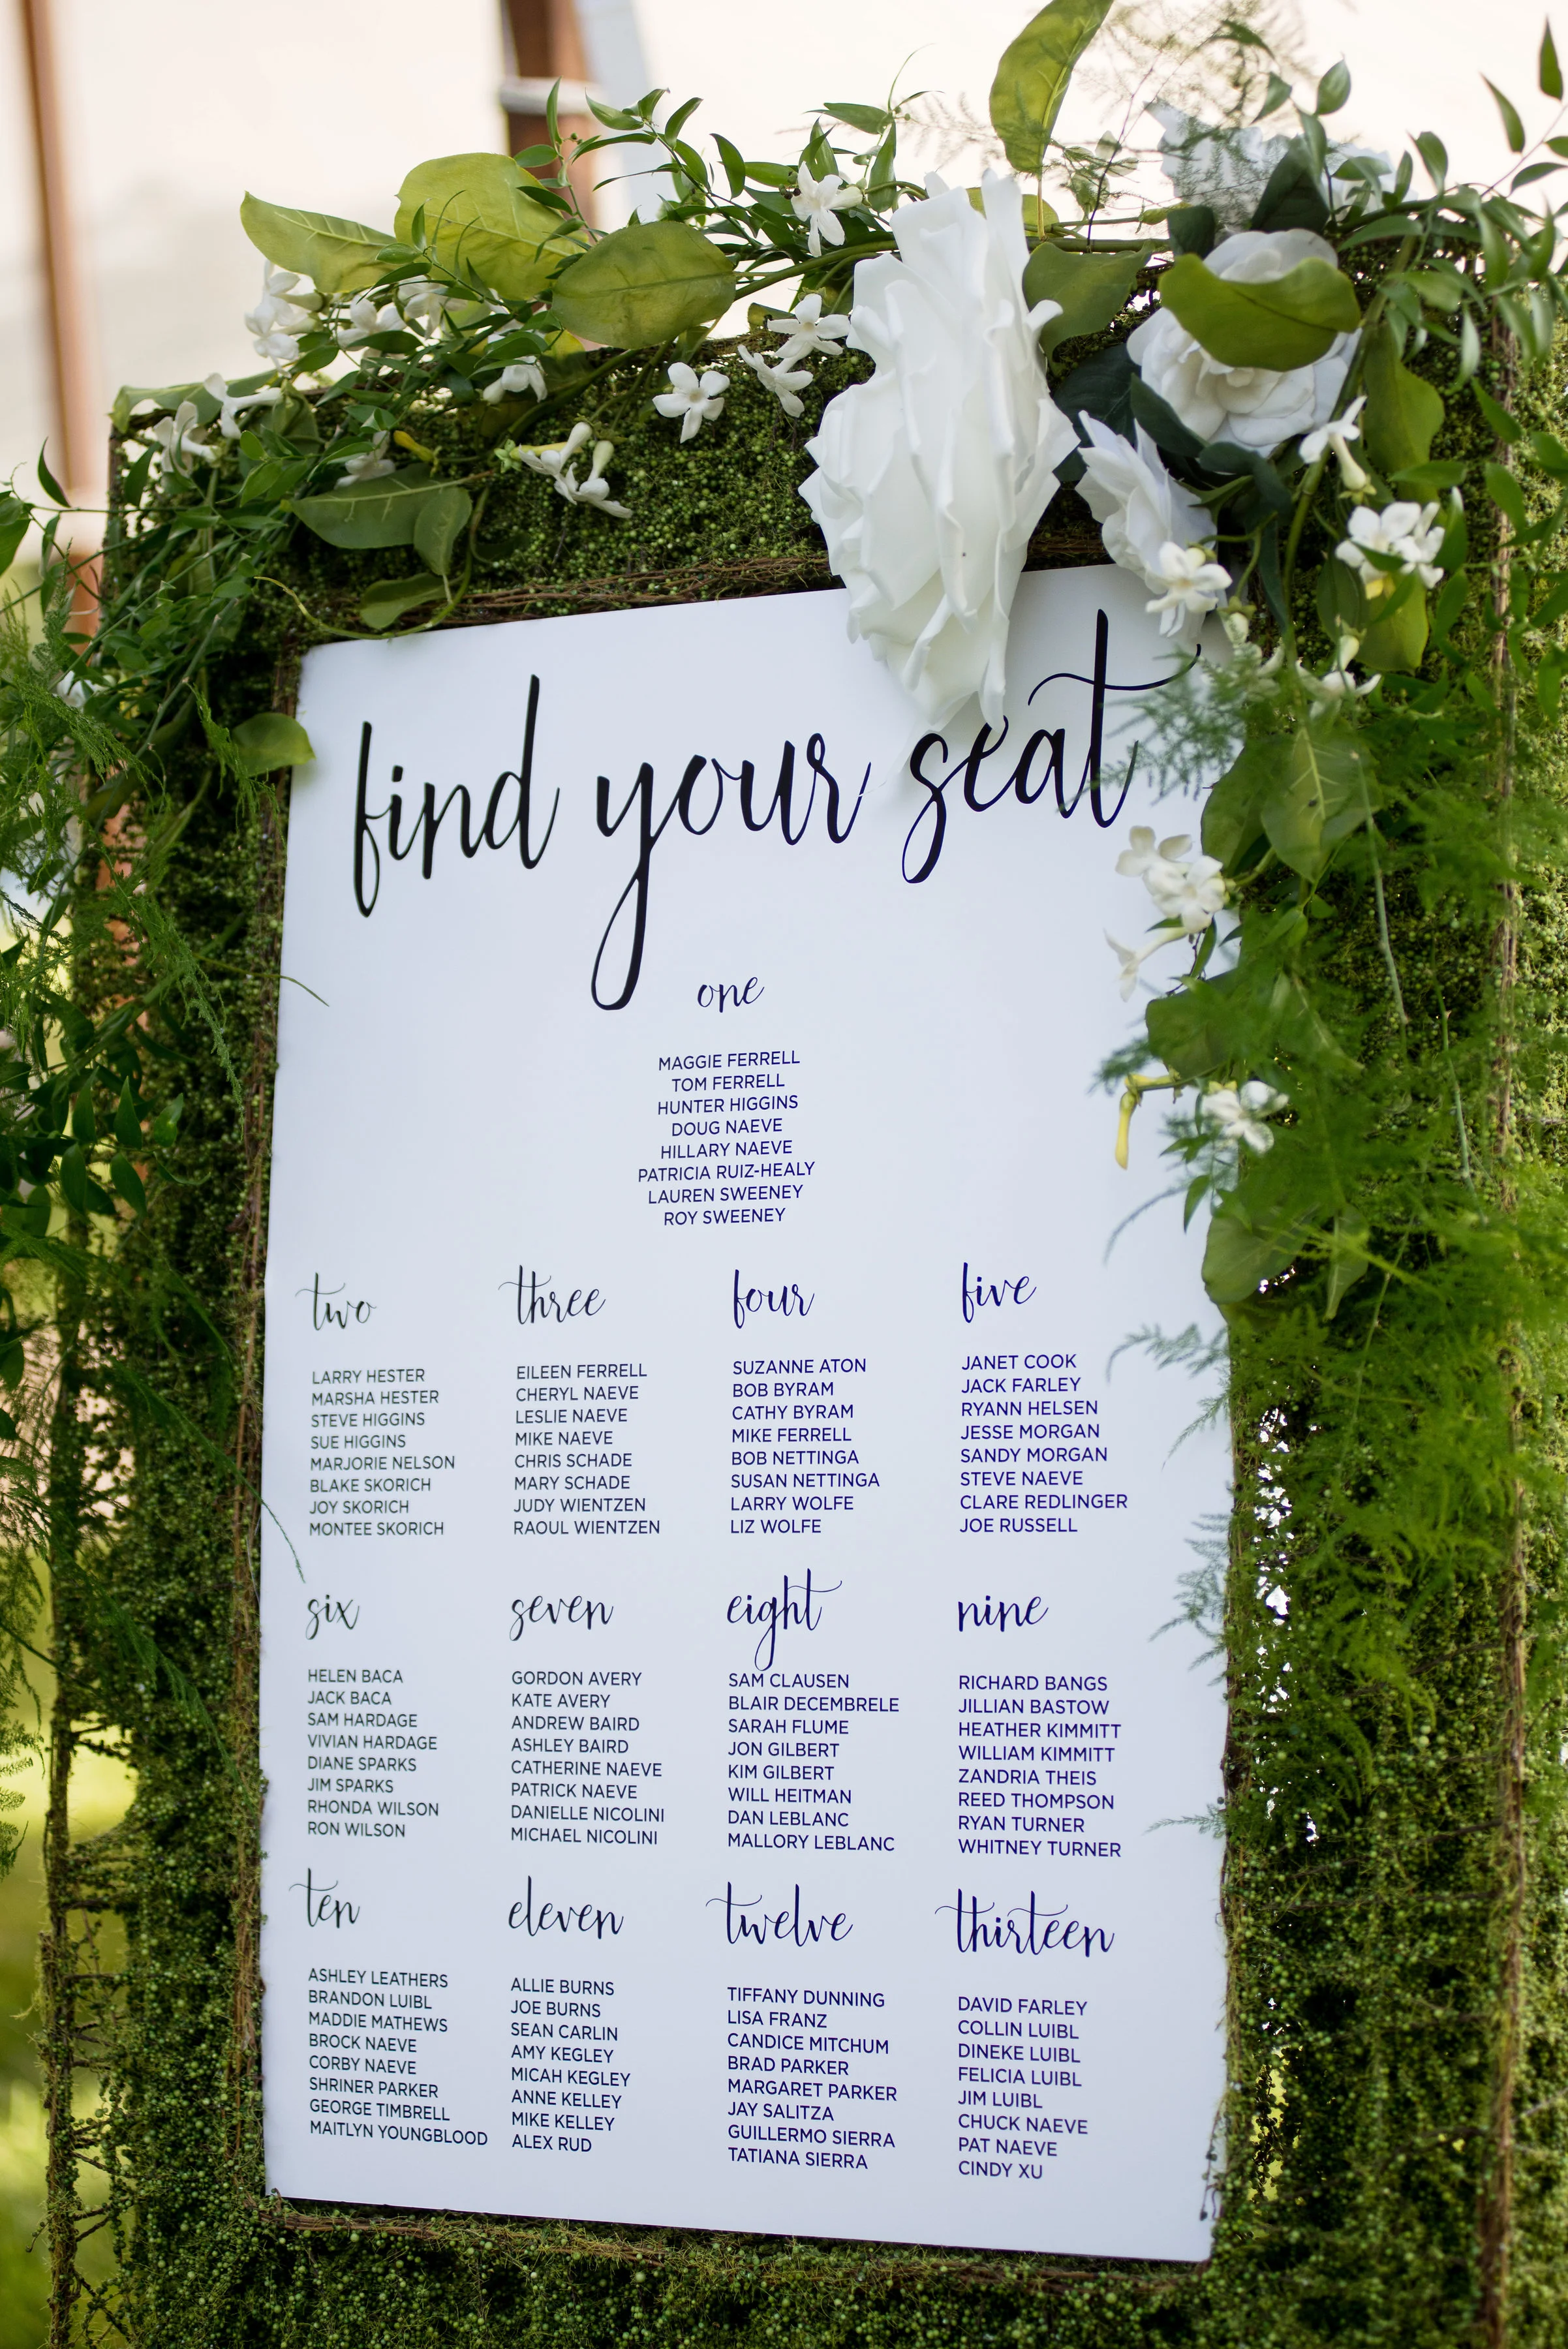 find your seat
one
MAGGIE FERRELL
TOM FERRELL
HUNTER HIGGINS
DOUG NAEVE
HILLARY NAEVE
PATRICIA RUIZ-HEALY
LAUREN SWEENEY
ROY SWEENEY
two
LARRY HESTER
MARSHA HESTER
STEVE HIGGINS
SUE HIGGINS
MARJORIE NELSON
BLAKE SKORICH
JOY SKORICH
MONTEE SKORICH
three
EILEEN FERRELL
CHERYL NAEVE
LESLIE NAEVE
MIKE NAEVE
CHRIS SCHADE
MARY SCHADE
JUDY WIENTZEN
RAOUL WIENTZEN
four
SUZANNE ATON
BOB BYRAM
CATHY BYRAM
MIKE FERRELL
BOB NETTINGA
SUSAN NETTINGA
LARRY WOLFE
LIZ WOLFE
five
JANET COOK
JACK FARLEY
RYANN HELSEN
JESSE MORGAN
SANDY MORGAN
STEVE NAEVE
CLARE REDLINGER
JOE RUSSELL
six
HELEN BACA
JACK BACA
SAM HARDAGE
VIVIAN HARDAGE
DIANE SPARKS
JIM SPARKS
RHONDA WILSON
RON WILSON
seven
GORDON AVERY
KATE AVERY
ANDREW BAIRD
ASHLEY BAIRD
CATHERINE NAEVE
PATRICK NAEVE
DANIELLE NICOLINI
MICHAEL NICOLINI
eight
SAM CLAUSEN
BLAIR DECEMBRELE
SARAH FLUME
JON GILBERT
KIM GILBERT
WILL HEITMAN
DAN LEBLANC
MALLORY LEBLANC
nine
RICHARD BANGS
JILLIAN BASTOW
HEATHER KIMMITT
WILLIAM KIMMITT
ZANDRIA THEIS
REED THOMPSON
RYAN TURNER
WHITNEY TURNER
ten
ASHLEY LEATHERS
BRANDON LUIBL
MADDIE MATHEWS
BROCK NAEVE
CORBY NAEVE
SHRINER PARKER
GEORGE TIMBRELL
MAITLYN YOUNGBLOOD
eleven
ALLIE BURNS
JOE BURNS
SEAN CARLIN
AMY KEGLEY
MICAH KEGLEY
ANNE KELLEY
MIKE KELLEY
ALEX RUD
twelve
TIFFANY DUNNING
LISA FRANZ
CANDICE MITCHUM
BRAD PARKER
MARGARET PARKER
JAY SALITZA
GUILLERMO SIERRA
TATIANA SIERRA
thirteen
DAVID FARLEY
COLLIN LUIBL
DINEKE LUIBL
FELICIA LUIBL
JIM LUIBL
CHUCK NAEVE
PAT NAEVE
CINDY XU